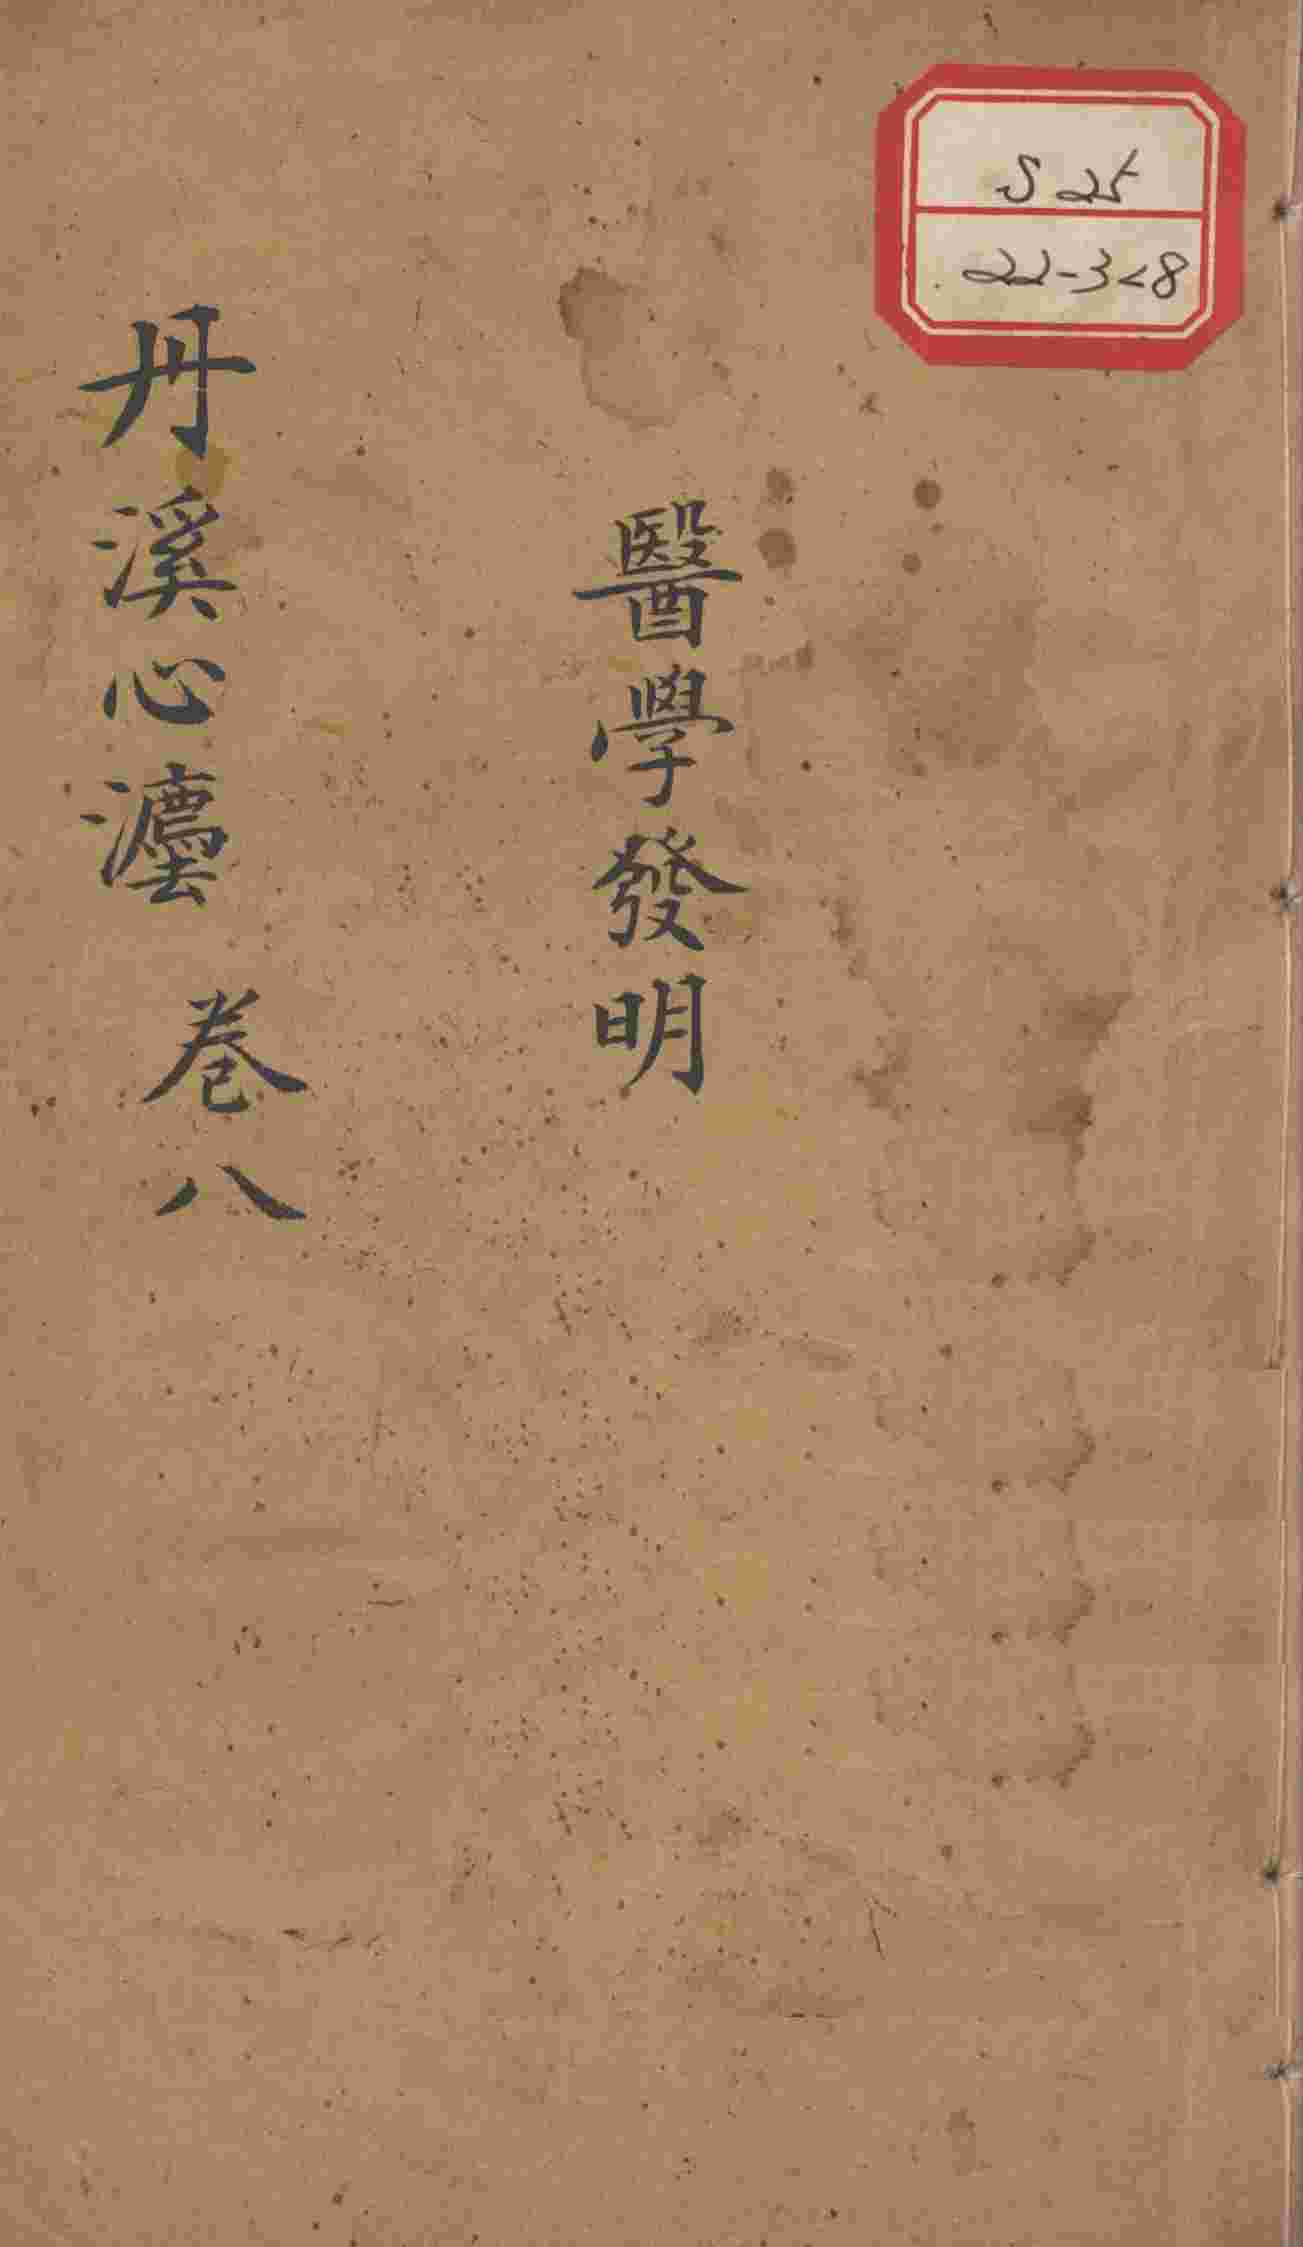 S25
22-328
醫學發明
丹溪心灋 卷八